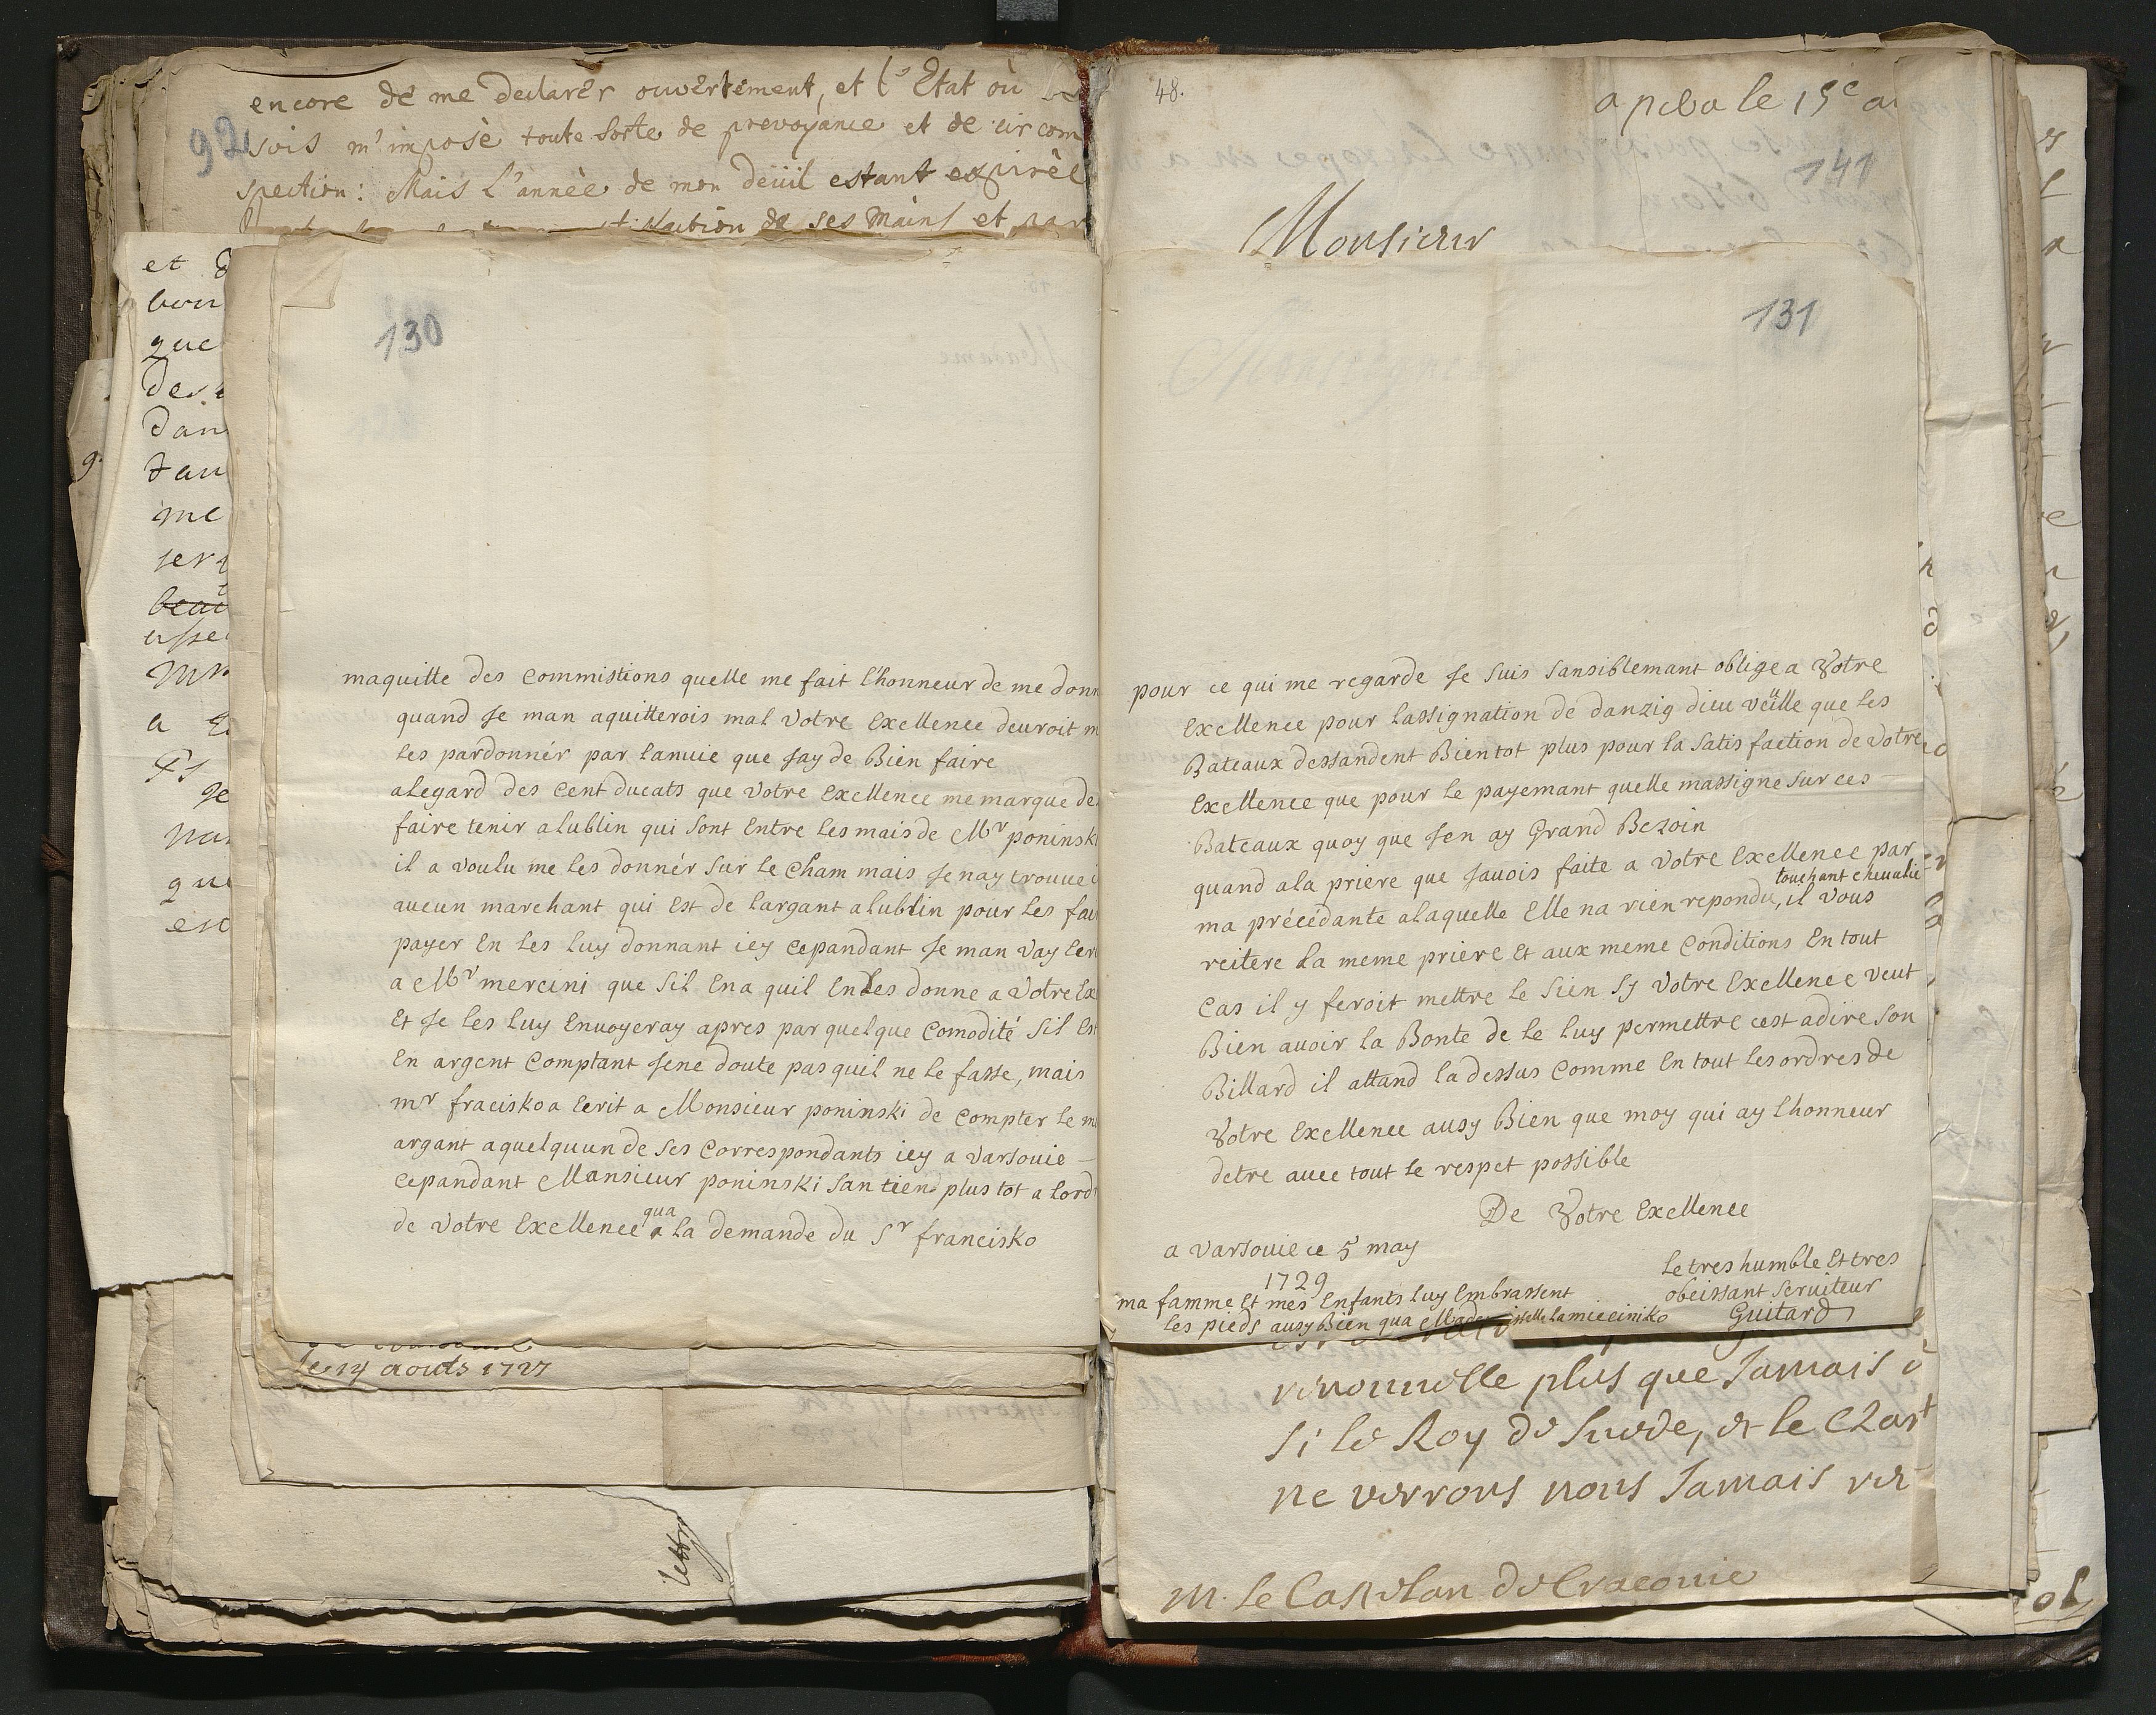 encore de me declarer ouvertement, et l'Etat où
92
suis m'impose toute sorte de prevoyance et de circom
spection: Mais l'année de mon deüil estant expirée
de ses mains et par
et
bon
que
des
Dan
tan
me
ser
beau
asse
a
Et
que
130
maquitte des Commistions quelle me fait lhonneur de me donn
quand Je man aquitterois mal Votre Exellence deuroit m
les pardonnér par lanuie que Jay de Bien faire
alegard des Cent ducats que Votre Exellence me marque de
faire tenir alublin qui sont Entre les mais de Mr poninski
il a voulu me les donnér sur le Cham mais Je nay trouue i
aucun marchant qui Est de largant alublin pour les fai
payer En les luy donnant icy Cepandant Je man vay Ecri
a Mr mercini que sil Ena quil Endes donne a Votre Ex
Et Je les luy Enuoyeray apres par quelque Comodité sil Est
En argent Comptant Jene doute pas quil ne le fasse, mais
mr fracisko a Ecrit a Monsieur poninski de Compter le m
argant aquelquun de ses Correspondants icy a Varsouie
Cepandant Mansieur poninski san tien plus tot a lord
qua
de Votre Exellence a la demande du Sr francisko
le 14 aouts 1727
lettre
48.
a le 15e a
141
Monsieur
131
pour ce qui me regarde Je suis sansiblemant oblige a Votre
Exellence pour lassignation de danzig dieu veüille que les
Bateaux dessandent Bien tot plus pour la satis faction de Votre
Exellence que pour le payemant quelle massigne sur ces
Bateaux quoy que Jen ay Grand Bezoin
quand ala priere que Jauois faite a Votre Exellence par
touchant cheualie
ma précédante alaquelle Elle na rien repondu, il vous
reitere la meme priere Et aux meme Conditions En tout
Cas il y feroit mettre le sien sy Votre Exellence veut
Bien auoir la Bonte de le luy permettre cest adire son
Billard il attand la dessus Comme En tout les ordres de
Votre Exellence ausy Bien que moy qui ay lhonneur
detre auec tout le respet possible
De Votre Exellence
a Varsouie ce 5 may
1729
Le tres humble Et tres
obeissant seruiteur
Guitard
ma famme Et mes Enfants luy Embrassent
les pieds ausy Bien qua lamieciniko
renouuelle plus que Jamais
si le Roy de Suede, et le Czar
ne verrons nous Jamais
M. le Castelan de Cracouie